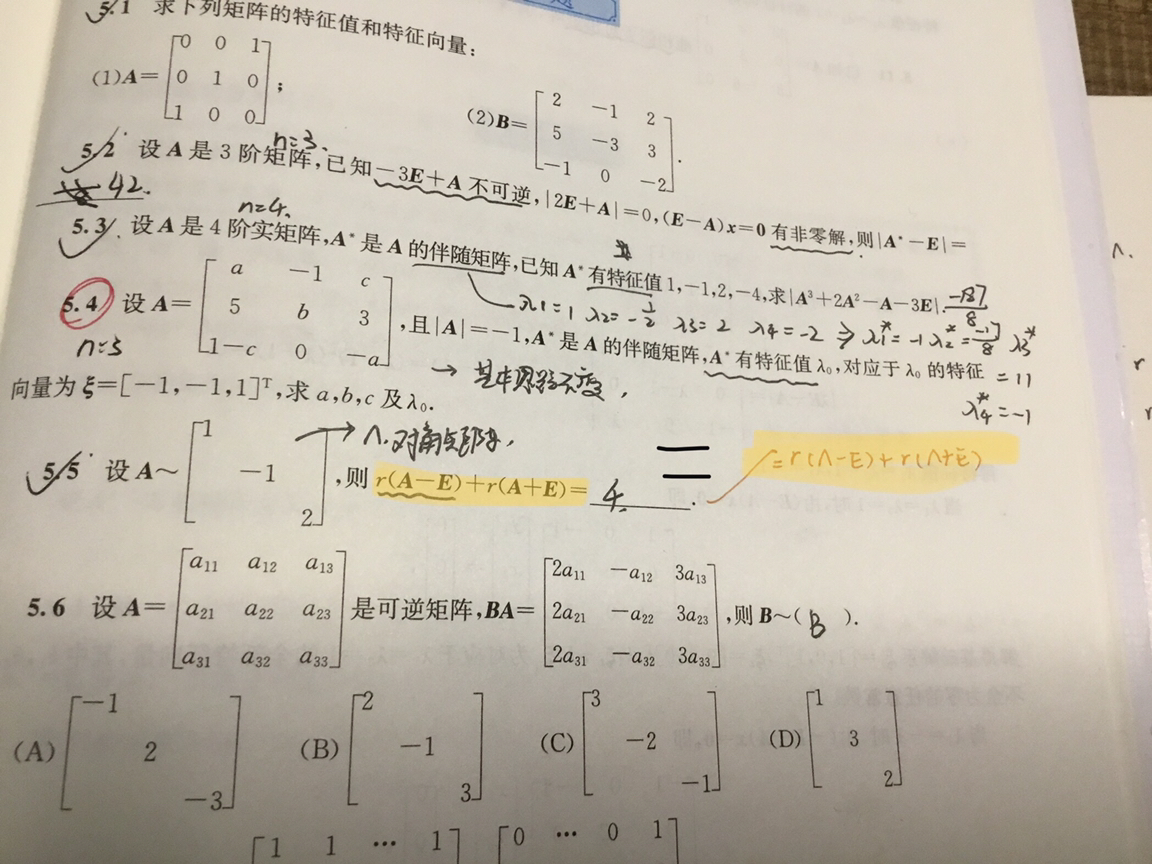 5.1 求下列矩阵的特征值和特征向量：
(1)A=[0 0 1
0 1 0
1 0 0];
(2)B=[2 −1 2
5 −3 3
−1 0 −2].
n=3.
5.2 设 A 是 3 阶矩阵,已知−3E+A 不可逆,|2E+A|=0,(E−A)x=0 有非零解,则|A*−E|=
42.
n=4.
5.3 设 A 是 4 阶实矩阵,A*是 A 的伴随矩阵,已知 A*有特征值 1,−1,2,−4,求|A³+2A²−A−3E|.
−187/8
λ1=1 λ2=−1/2 λ3=2 λ4=−2 ⇒ λ1*=−1 λ2*=−17/8 λ3*
=11
λ4*=−1
5.4 设 A=[a −1 c
5 b 3
1−c 0 −a],且|A|=−1,A*是 A 的伴随矩阵,A*有特征值 λ₀,对应于 λ₀ 的特征
n=3
→ 基本思路不变,
向量为 ξ=[−1,−1,1]ᵀ,求 a,b,c 及 λ₀.
Λ.对角矩阵.
5.5 设 A~[1
−1
2],则 r(A−E)+r(A+E)= 4.
=
=r(Λ−E)+r(Λ+E)
5.6 设 A=[a₁₁ a₁₂ a₁₃
a₂₁ a₂₂ a₂₃
a₃₁ a₃₂ a₃₃]是可逆矩阵,BA=[2a₁₁ −a₁₂ 3a₁₃
2a₂₁ −a₂₂ 3a₂₃
2a₃₁ −a₃₂ 3a₃₃],则 B~( B ).
(A)[−1
2
−3]
(B)[2
−1
3]
(C)[3
−2
−1]
(D)[1
3
2]
[1 1 ⋯ 1] [0 ⋯ 0 1]